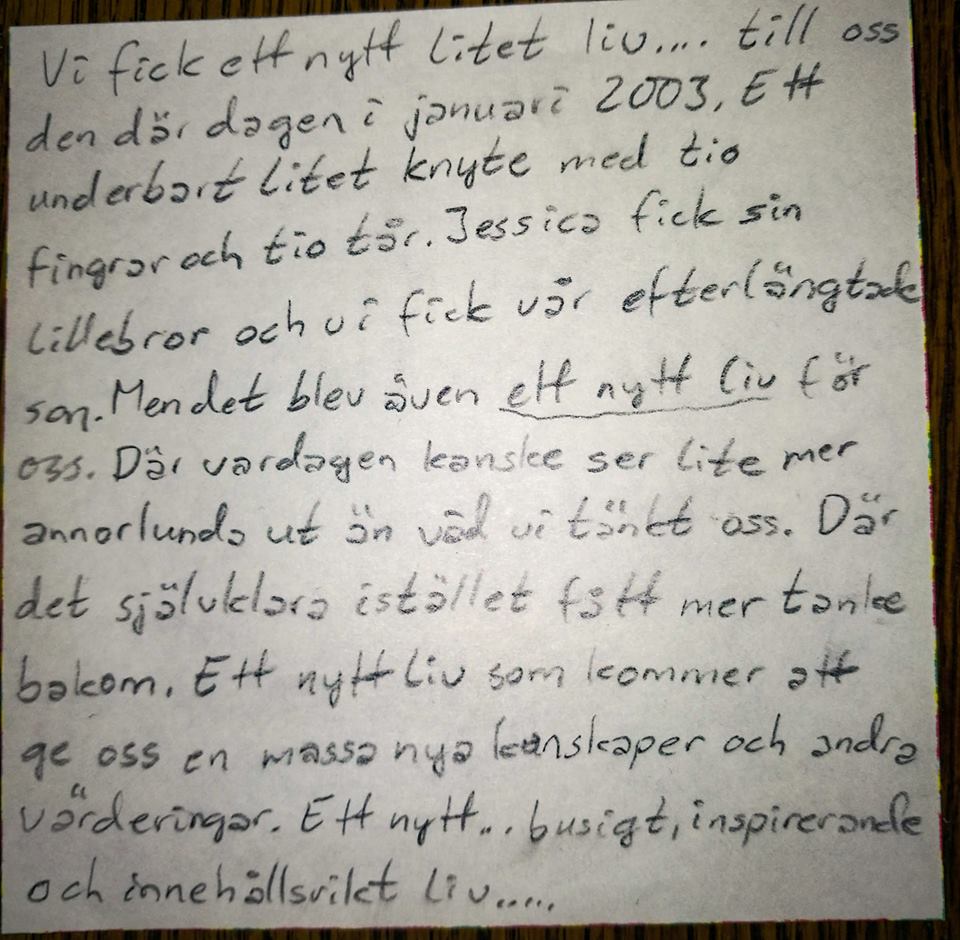 Vi fick ett nytt litet liv.... till oss
den där dagen i januari 2003. Ett
underbart litet knyte med tio
fingrar och tio tår. Jessica fick sin
lillebror och vi fick vår efterlängtade
son. Men det blev även ett nytt liv för
oss. Där vardagen kanske ser lite mer
annorlunda ut än vad vi tänkt oss. Där
det självklara istället fått mer tanke
bakom. Ett nytt liv som kommer att
ge oss en massa nya kunskaper och andra
värderingar. Ett nytt... busigt, inspirerande
och innehållsrikt liv.....